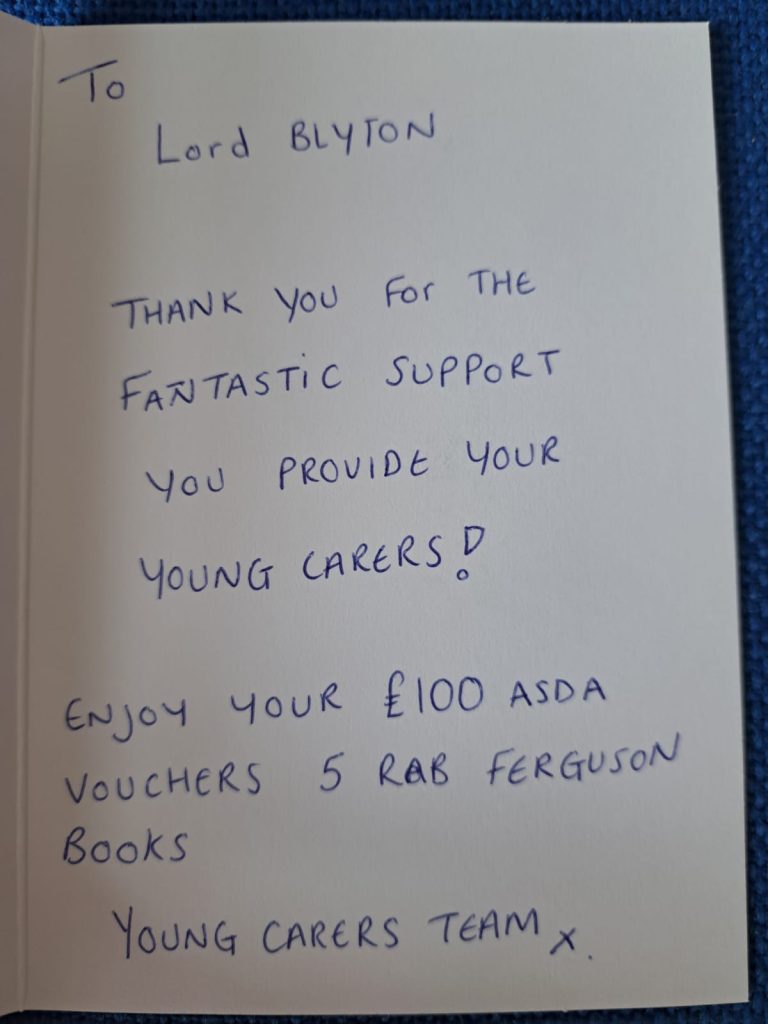 To
Lord BLYTON
THANK YOU For THE
FANTASTIC SUPPORT
YOU PROVIDE YOUR
YOUNG CARERS!
ENJOY YOUR £100 ASDA
VOUCHERS 5 RAB FERGUSON
BOOKS
YOUNG CARERS TEAM x.